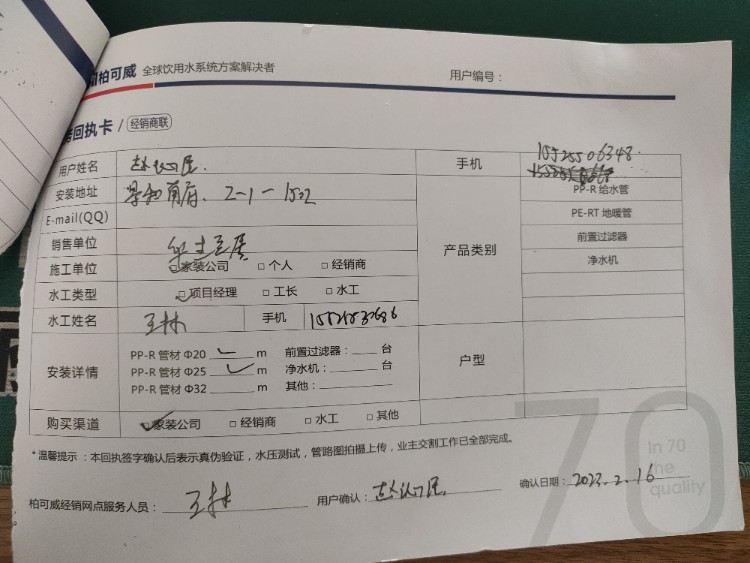 柏可威 全球饮用水系统方案解决者
用户编号：
回执卡 / 经销商联
用户姓名
手机 155255 06348
安装地址 2-1-1502
PP-R 给水管
E-mail(QQ)
PE-RT 地暖管
销售单位
产品类别
前置过滤器
施工单位 □家装公司 □个人 □经销商
净水机
水工类型 □项目经理 □工长 □水工
水工姓名 王林 手机
安装详情
PP-R 管材 Φ20 m 前置过滤器： 台
PP-R 管材 Φ25 m 净水机： 台
PP-R 管材 Φ32 m 其他：
户型
购买渠道 □家装公司 □经销商 □水工 □其他
70
In 70
the
quality
*温馨提示：本回执签字确认后表示真伪验证，水压测试，管路图拍摄上传，业主交割工作已全部完成。
柏可威经销网点服务人员： 王林 用户确认： 确认日期： 2023.2.16